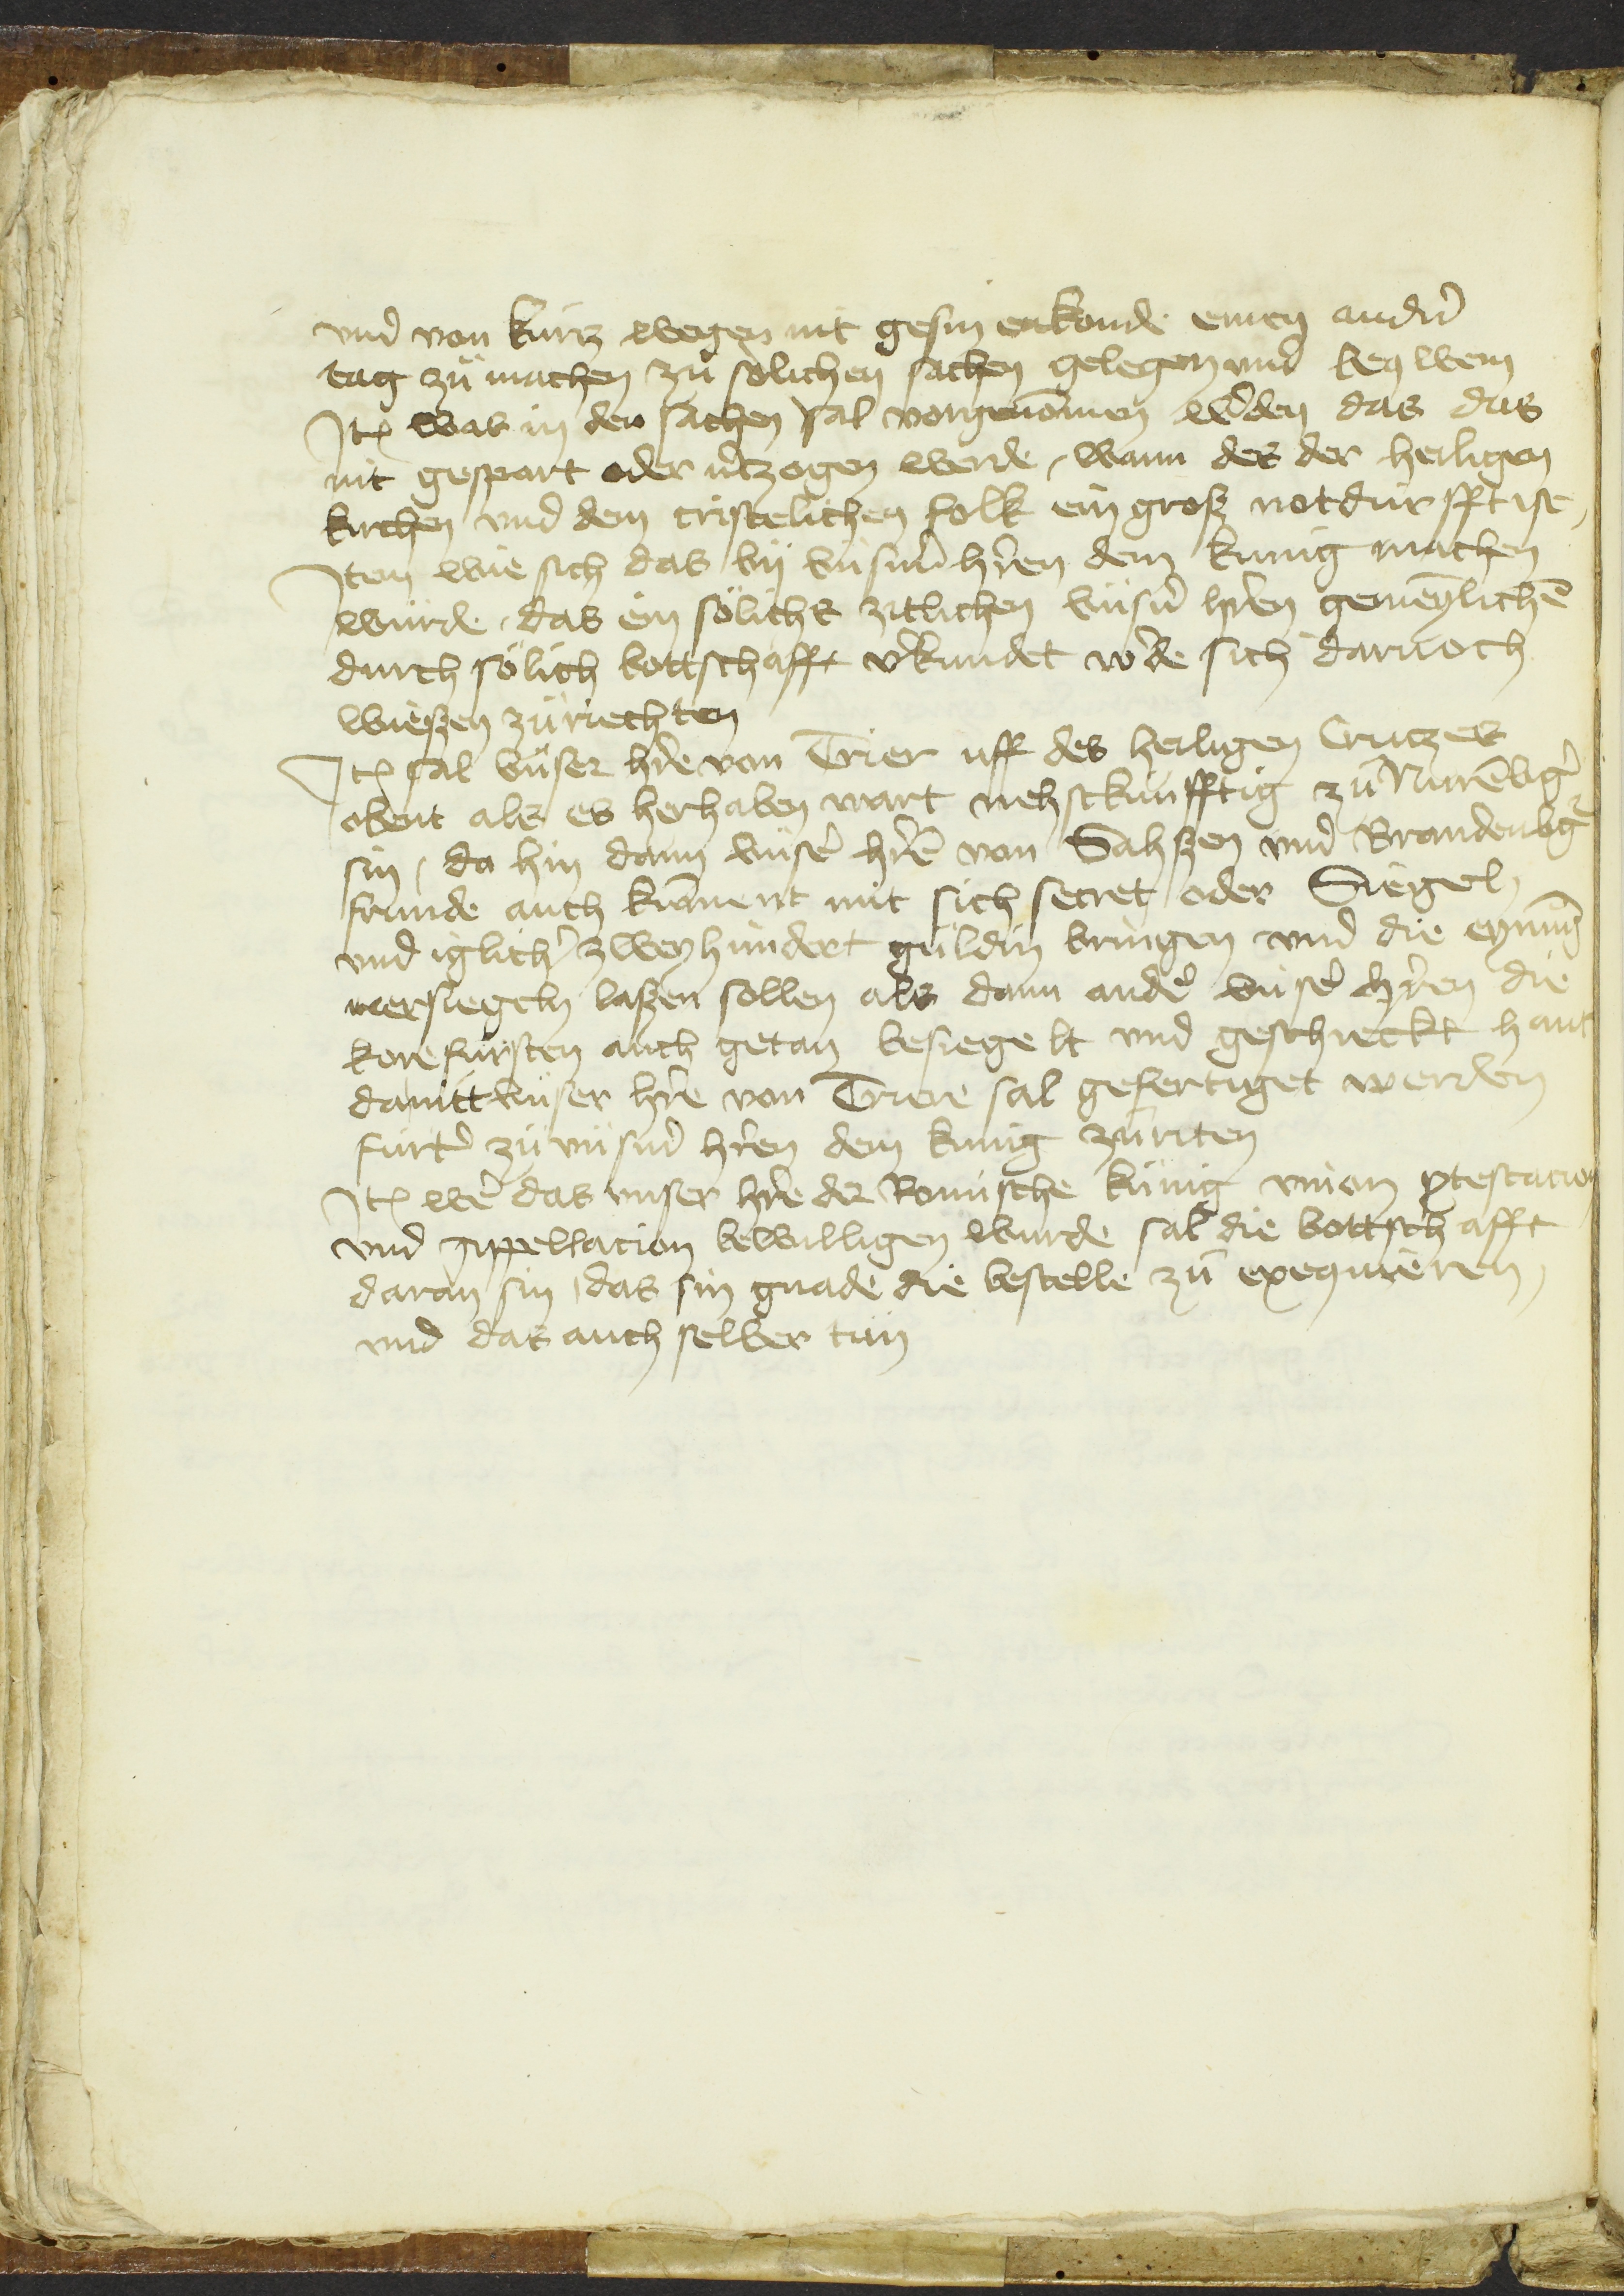 vnd von kurtz wegen nit gesin enkonde einen and'n
tag zu machen zu solichen sachen gelegen vnd beqwem
Jt(em) was in den sachen sal vorgenomen w'den das das
nit gespart oder v'tzogen werde, wann des der heiligen
kirchen vnd dem cristelichen folk ein groß notdurfft ist,
Jtem wie sich das by vnsm' h'ren dem kunig machen
wurde, das ein sölichs zitlichen vnsn' h'ren gemeynlichē
durch sölich bottschafft v'kundet w'de sich darnoch
wießen zu riechten
Jt(em) sal vnser h're von Trier uff des heiligen Crutzes
obent als es herhaben wart nehstkunfftig zu Nurēb'g
sin, da hin dann vnse' h'rē von Sahßen vnd Brandenb'g
frunde auch kōment mit sich secret oder Siegel
vnd iglich' zweyhundert guldin bringen vnd die eynūg
versiegeln laßen sollen als dann ande' vnse' h'ren die
korefursten auch getan besiegelt vnd geschieckt hant
damitt vnser h're von Triere sal gefertiget werden
furt' zu vnsm' h'ren dem kunig zu riten
Jt(em) we' das vnser h're der Romische kunig vnion p'testacion
vnd Appellacion bewilligen wurde sal die bottschafft
daran sin, das sin gnade die bestelle zu exequieren,
vnd das auch selber tun